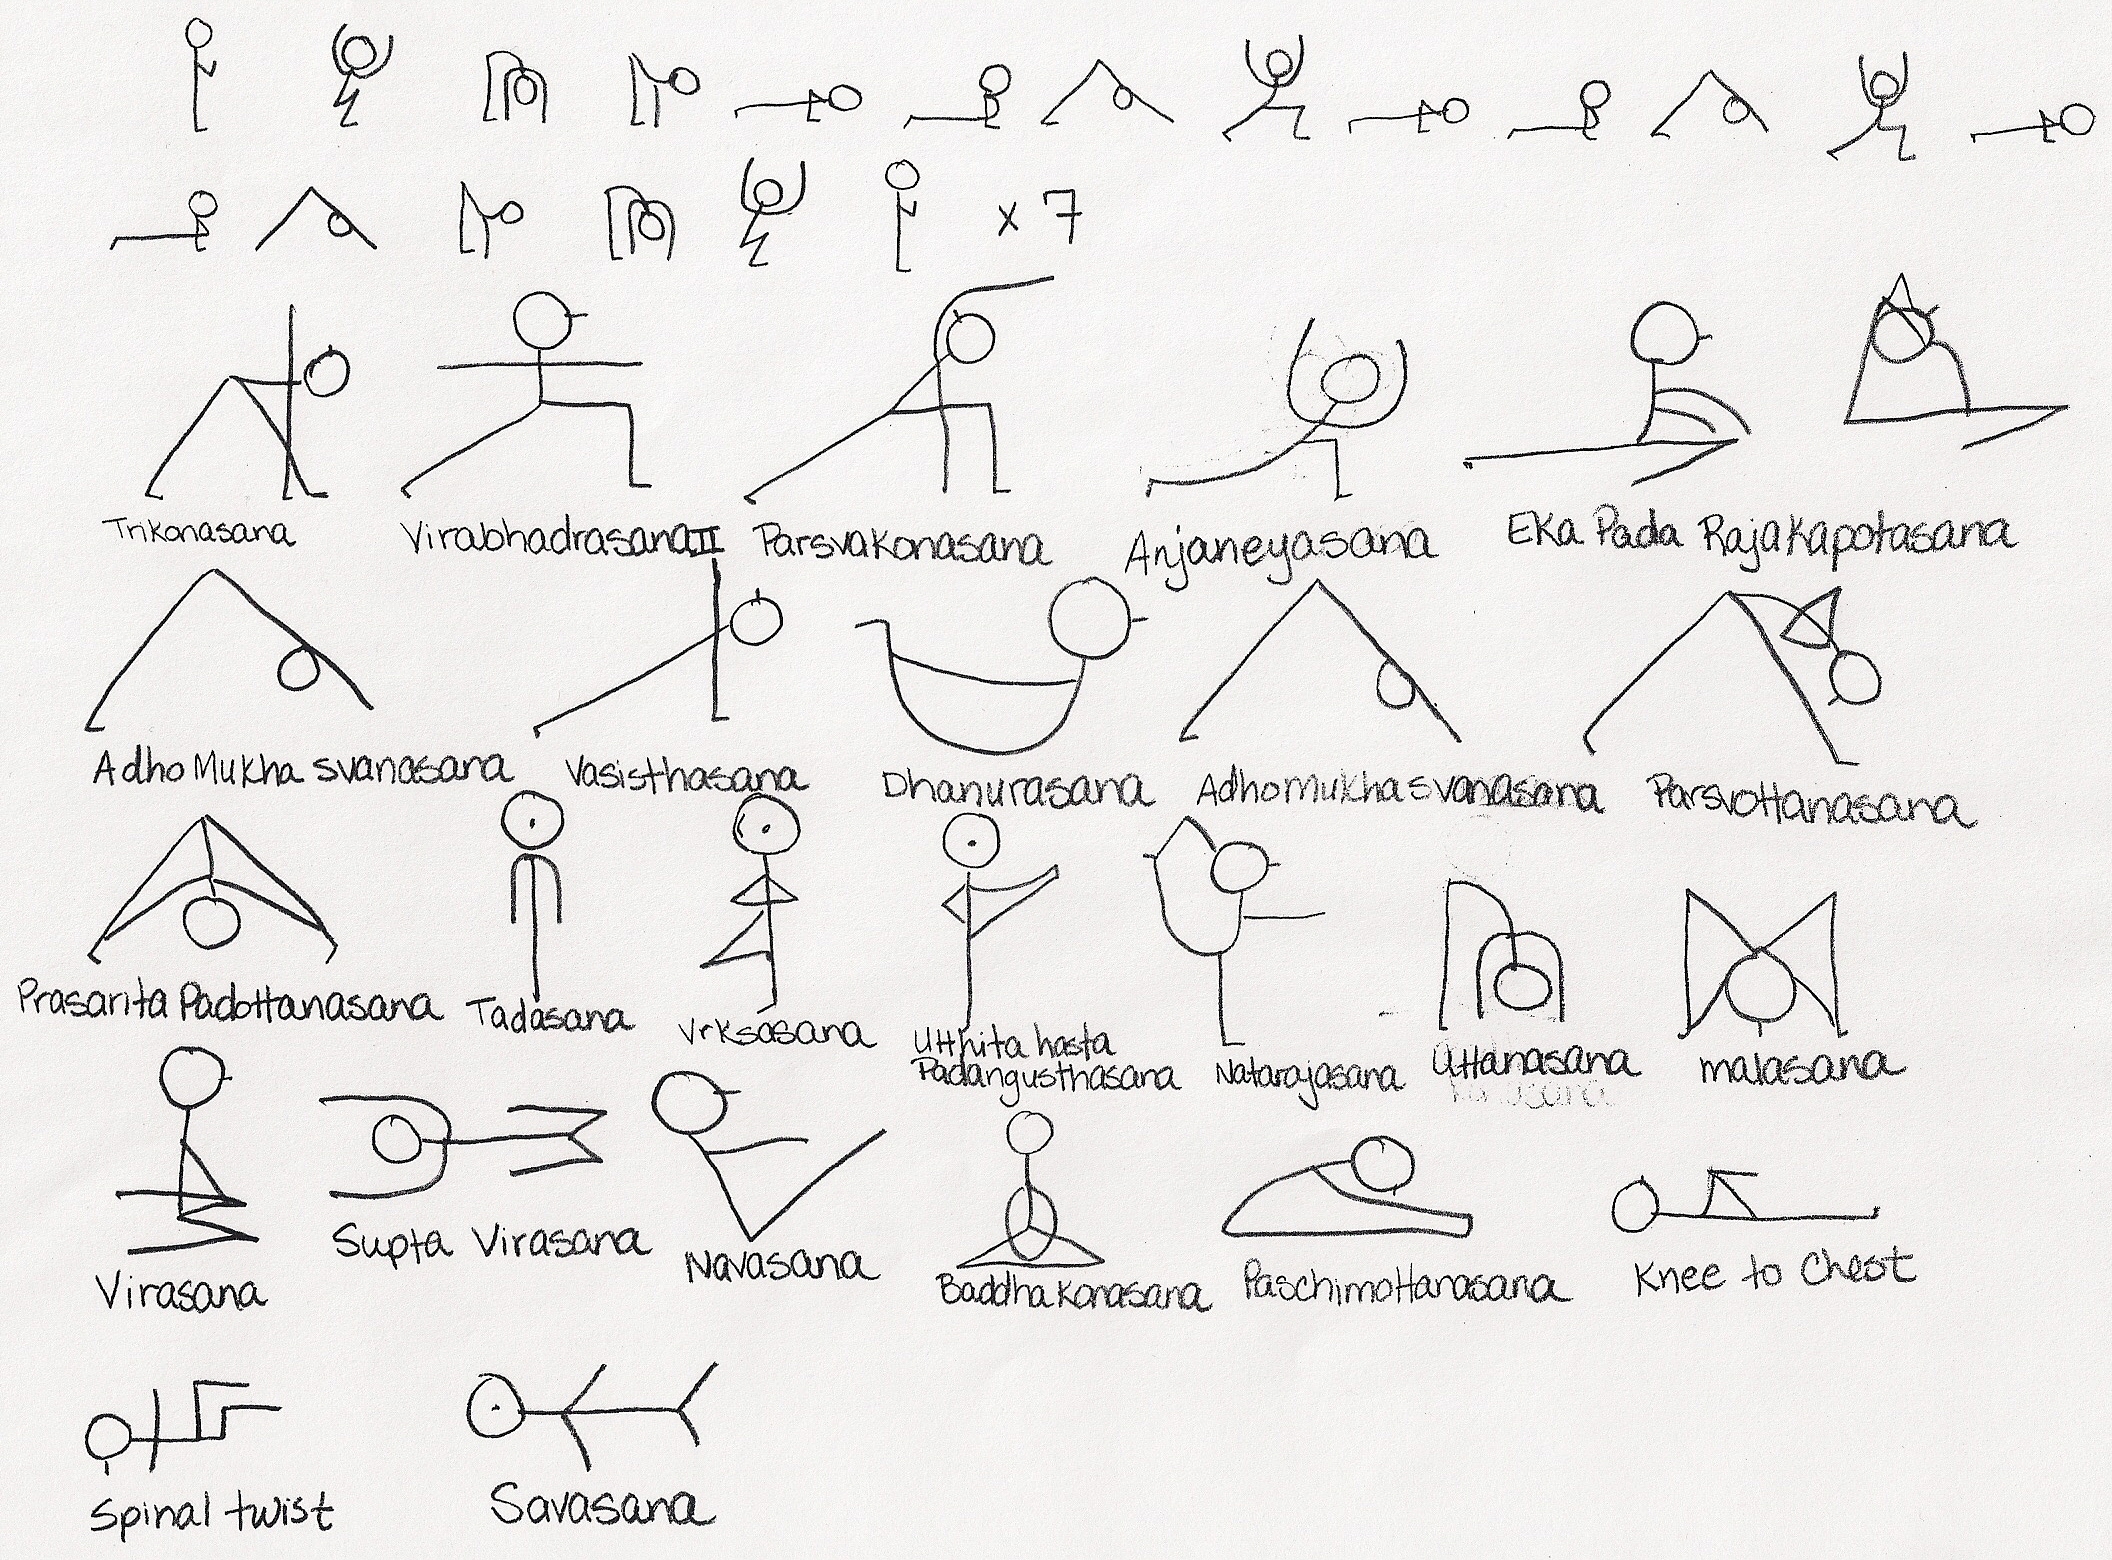 x 7
Trikonasana Virabhadrasana II Parsvakonasana Anjaneyasana Eka Pada Rajakapotasana
Adho Mukha svanasana Vasisthasana Dhanurasana Adho Mukha svanasana Parsvottanasana
Prasarita Padottanasana Tadasana Vrksasana Utthita hasta
Padangusthasana Natarajasana Uttanasana malasana
Virasana Supta Virasana Navasana Baddha Konasana Paschimottanasana Knee to Chest
Spinal twist Savasana